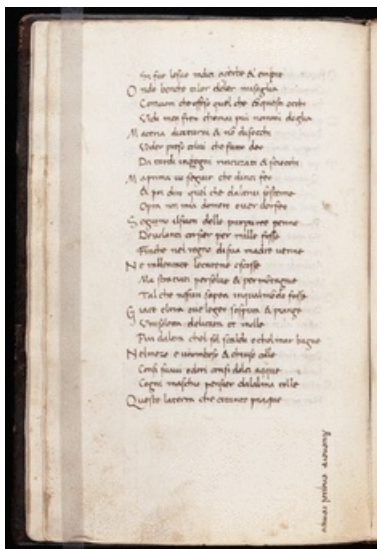 Si fur lesue radici acerbe & empie
Onde benche talor doler misoglia
Comuom che offeso quel che conquesti occhi
Vidi mea fren chemai piu nonmi doglia
Materia dicoturni & nō disocchi
Veder preso colui che fatto deo
Da tardi ingegni rintuzati & sciocchi
Ma prima vo seguir che dinoi feo
& poi diro quel che daltrui sostenne
Opra non mia domero over dorfeo
Seguimo ilsuon delle purpuree penne
Devolanti corsier per mille fosse
Finche nel regno disua madre venne
Ne rallentate lecatene oscosse
Ma straccati perselve & permōtagne
Tal che nessun sapea inqualmōdo fosse
Giace oltra ove legeo sospira & piange
Unisoletta delicata et molle
Piu daltra chel sol scalde echel mar bagne
Nelmezo e unombroso & chiuso colle
Consi suavi odori consi dolci acque
Cogni maschio pensier dalalma tolle
Questa laterra che cotanto piacque